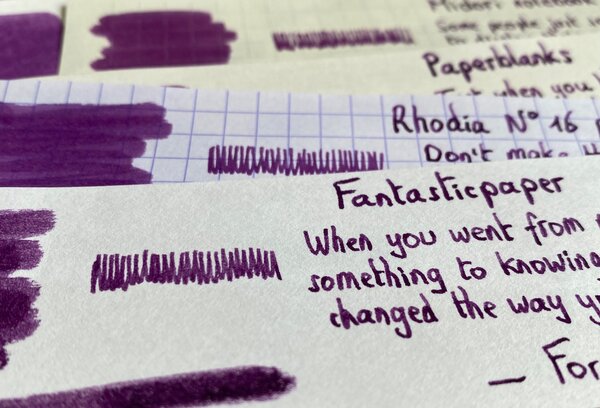 Midori notebook
Some people just
Paperblanks
when you
Rhodia N° 16
Don't make
Fantasticpaper
When you went from
something to knowing
changed the way
— For